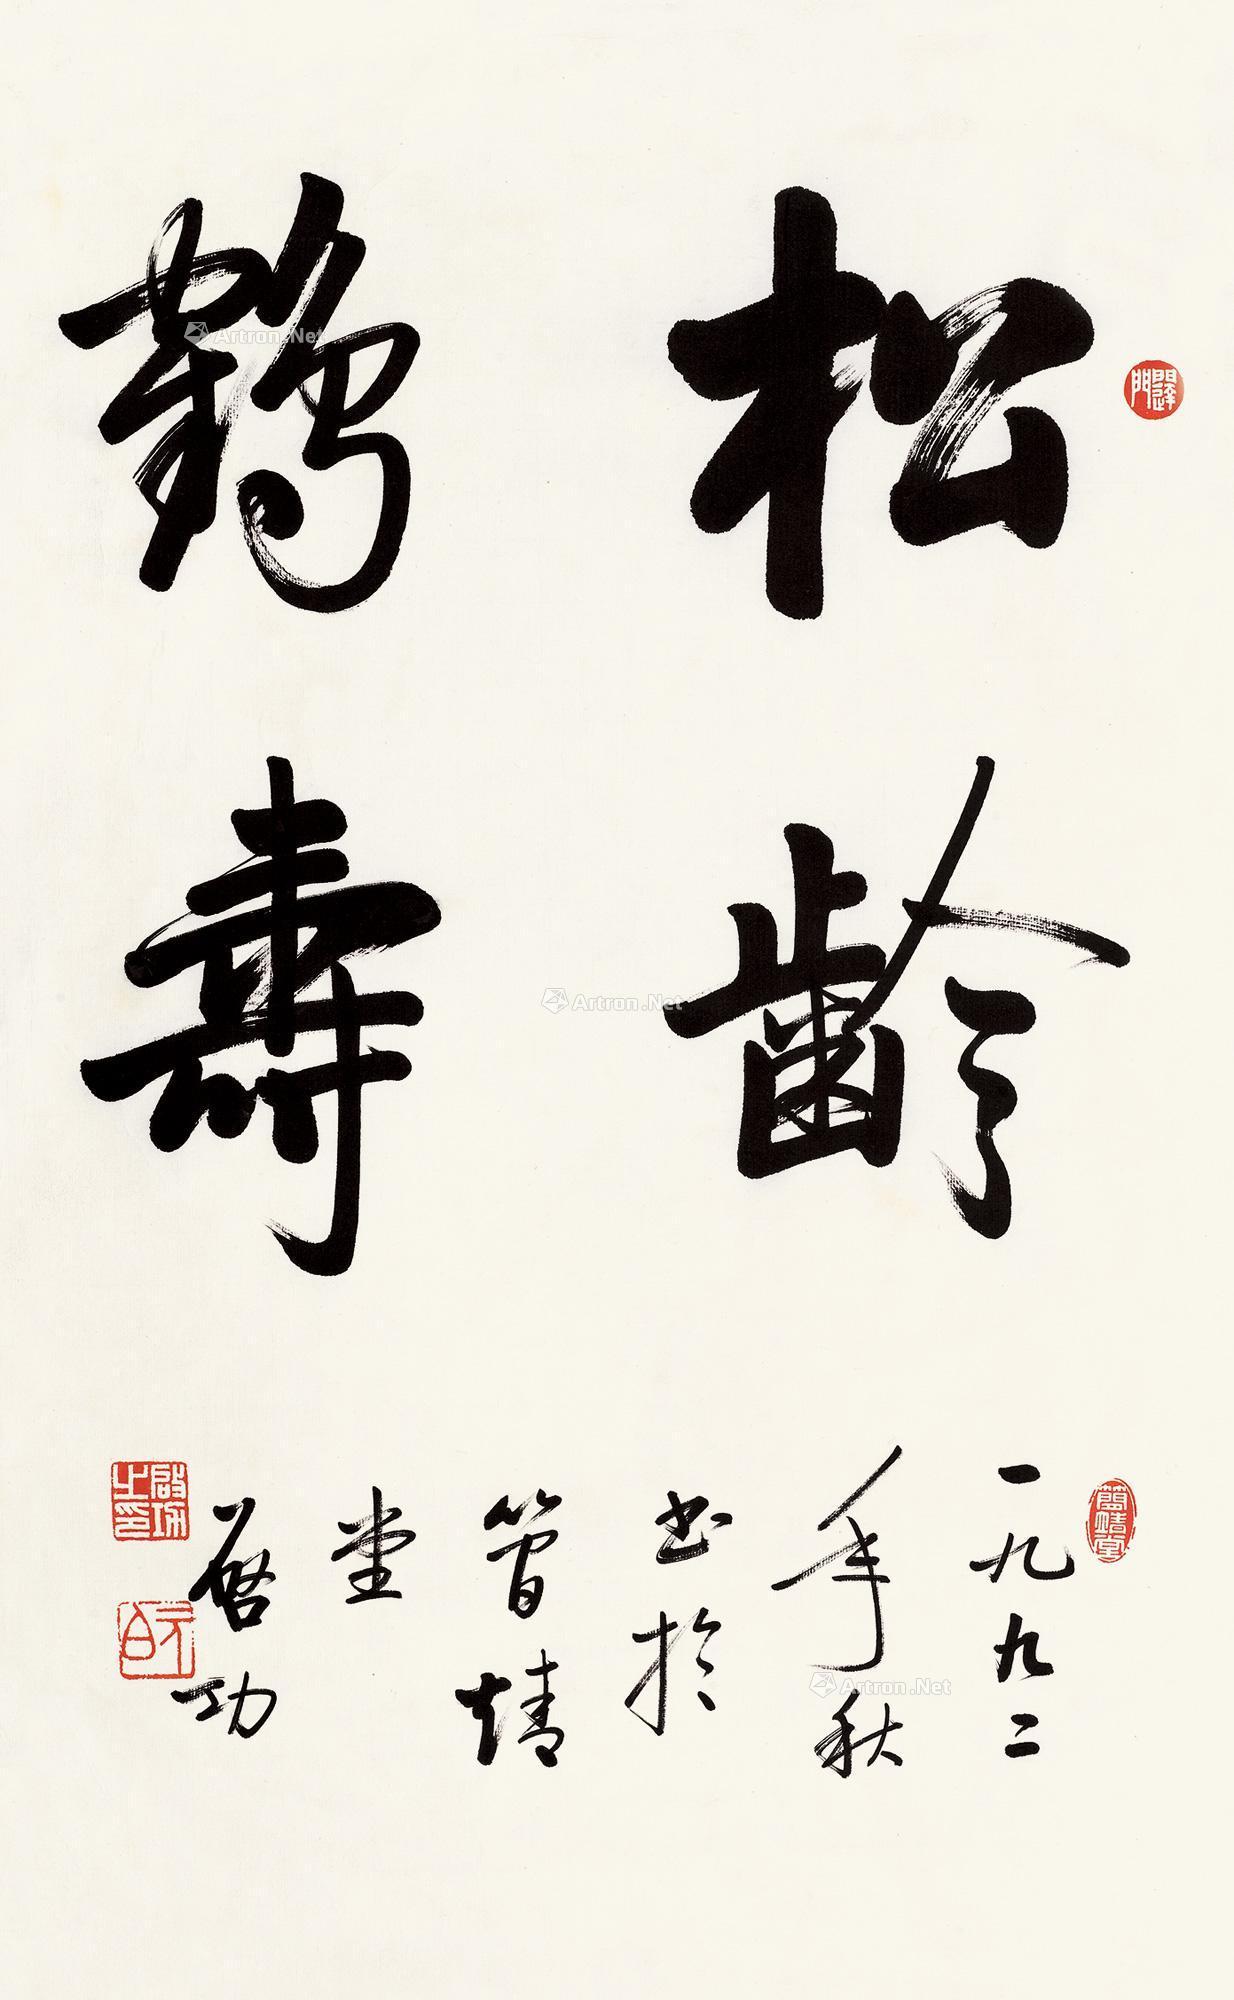 松齡
鶴壽
一九九二
年秋
書於
簡靖
堂
啓功
簡靖堂
啟功之印
元白
Artron.Net
Artron.Net
Artron.Net